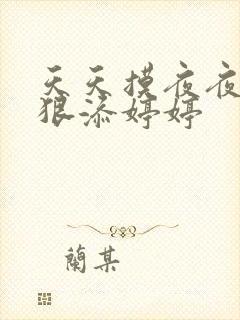 天天摸夜夜
狠添婷婷
蘭某